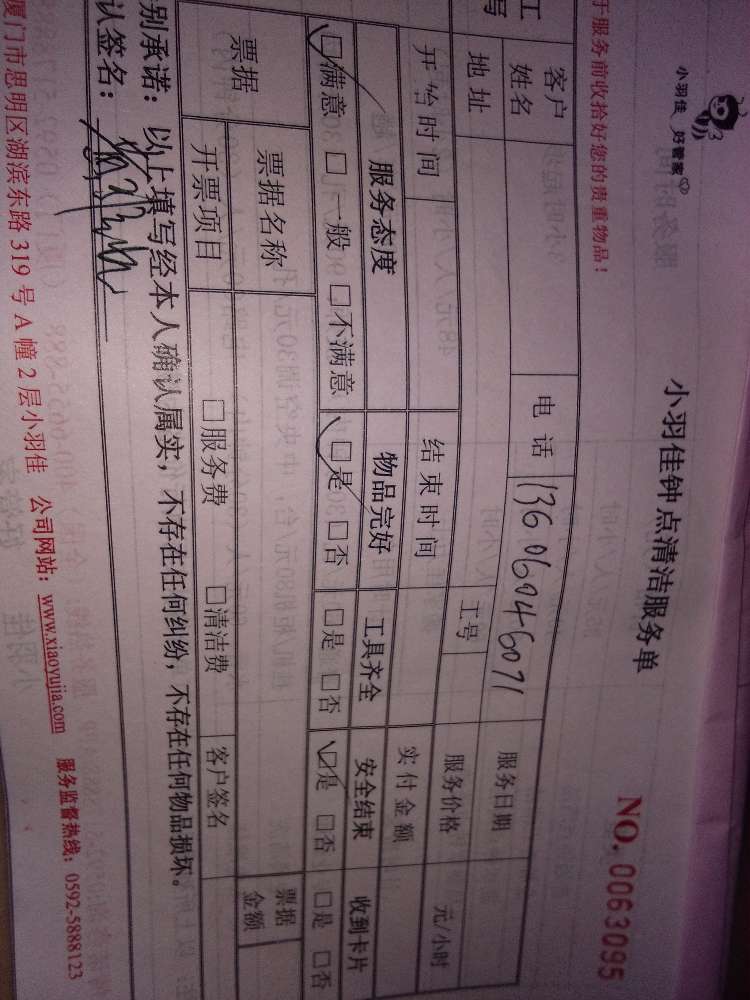 小羽佳 好管家
小羽佳钟点清洁服务单
NO. 0063095
于服务前收拾好您的贵重物品!
工
写
客户
姓名
电 话
13606046071
服务日期
地 址
工号
服务价格
元/小时
开始时间
结束时间
实付金额
服务态度
物品完好
工具齐全
安全结束
收到卡片
☑满意 □一般 □不满意
☑是 □否
□是 □否
☑是 □否
□是 □否
票据
票据名称
票据
金额
开票项目
□服务费
□清洁费
客户签名
别承诺:以上填写经本人确认属实,不存在任何纠纷,不存在任何物品损坏。
认签名:
厦门市思明区湖滨东路 319 号 A 幢 2 层小羽佳 公司网站:www.xiaoyujia.com 服务监督热线:0592-5888123